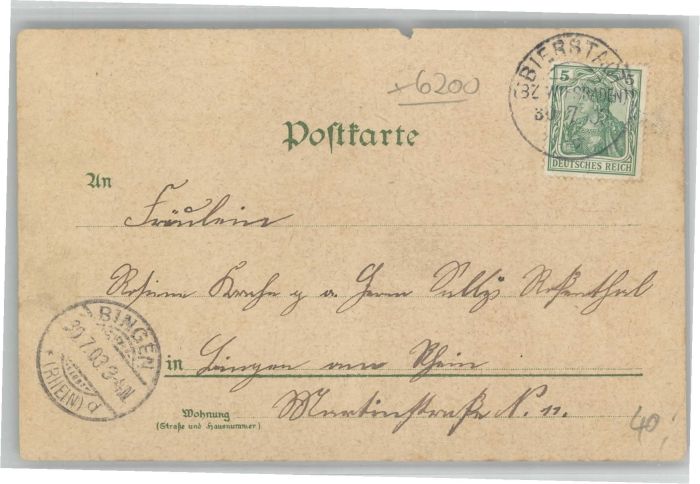 +6200
BIERSTADT
(BZ WIESBADEN)
30 7 03
5 5
DEUTSCHES REICH
Postkarte
An
Fräulein
Rosina p. a. Herrn Sally Rosenthal
in Bingen am Rhein
Wohnung Martinstraße N. 11.
(Straße und Hausnummer)
BINGEN
30.7.03 3-4N
* (RHEIN) d
40,-